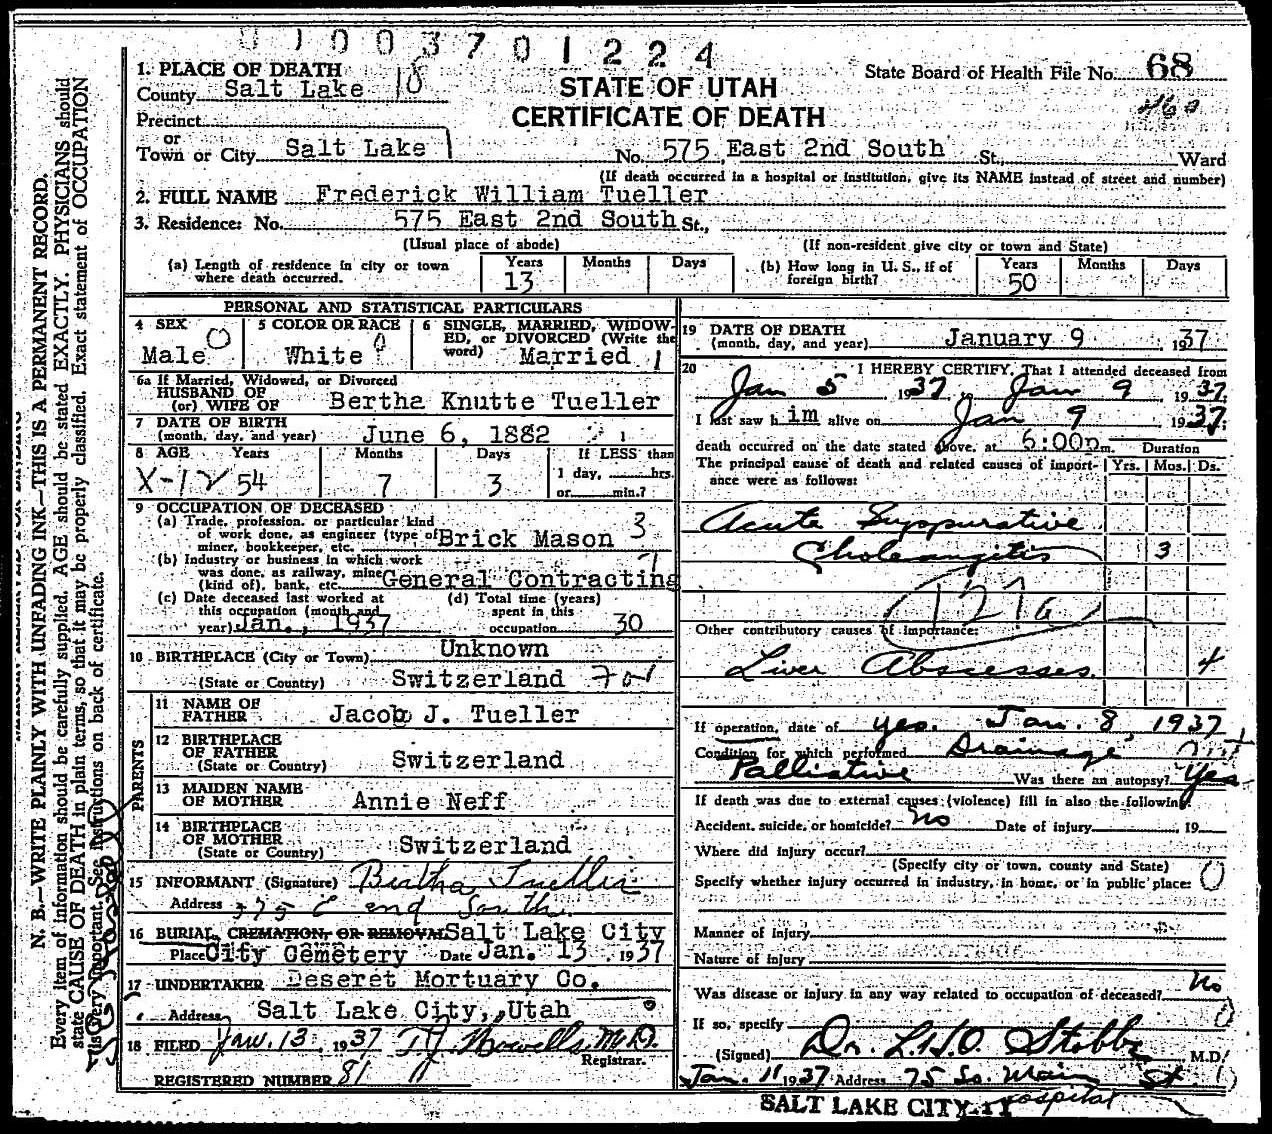 01003701224
1. PLACE OF DEATH
County Salt Lake 18
Precinct
or
Town or City Salt Lake 1
STATE OF UTAH
CERTIFICATE OF DEATH
State Board of Health File No. 68
No. 575 East 2nd South St., Ward
(If death occurred in a hospital or institution, give its NAME instead of street and number)
2. FULL NAME Frederick William Tueller
3. Residence: No. 575 East 2nd South St.,
(Usual place of abode) (If non-resident give city or town and State)
(a) Length of residence in city or town where death occurred. Years 13 Months Days
(b) How long in U. S., if of foreign birth? Years 50 Months Days
PERSONAL AND STATISTICAL PARTICULARS
4 SEX Male 0
5 COLOR OR RACE White 0
6 SINGLE, MARRIED, WIDOWED, OR DIVORCED (Write the word) Married 1
6a If Married, Widowed, or Divorced
HUSBAND OF
(or) WIFE OF Bertha Knutte Tueller
7 DATE OF BIRTH
(month, day, and year) June 6, 1882
8 AGE Years 54 Months 7 Days 3
If LESS than
1 day, hrs.
or min.?
9 OCCUPATION OF DECEASED
(a) Trade, profession, or particular kind
of work done, as engineer (type of
miner, bookkeeper, etc. Brick Mason 3
(b) Industry or business in which work
was done, as railway, mine
(kind of), bank, etc. General Contracting
(c) Date deceased last worked at
this occupation (month and
year) Jan., 1937
(d) Total time (years)
spent in this
occupation 30
10 BIRTHPLACE (City or Town) Unknown
(State or Country) Switzerland
PARENTS
11 NAME OF
FATHER Jacob J. Tueller
12 BIRTHPLACE
OF FATHER
(State or Country) Switzerland
13 MAIDEN NAME
OF MOTHER Annie Neff
14 BIRTHPLACE
OF MOTHER
(State or Country) Switzerland
15 INFORMANT (Signature) Bertha Tueller
Address 575 E 2nd South
16 BURIAL, CREMATION, OR REMOVAL Salt Lake City
Place City Cemetery Date Jan. 13, 1937
17 UNDERTAKER Deseret Mortuary Co.
Address Salt Lake City, Utah
18 FILED Jan. 13, 1937 T.J. Howells M.D.
Registrar.
REGISTERED NUMBER 81
19 DATE OF DEATH
(month, day, and year) January 9, 1937
20 I HEREBY CERTIFY, That I attended deceased from
Jan 5 1937, Jan 9, 1937.
I last saw him alive on Jan 9 1937;
death occurred on the date stated above, at 6:00p m. Duration
The principal cause of death and related causes of importance were as follows: Yrs. Mos. Ds.
Acute Suppurative
Cholangitis 3
127a
Other contributory causes of importance:
Liver Abscesses. 4
If operation, date of yes. Jan. 8, 1937
Condition for which performed Drainage
Palliative Was there an autopsy? Yes
If death was due to external causes (violence) fill in also the following:
Accident, suicide, or homicide? No Date of injury , 19
Where did injury occur?
(Specify city or town, county and State)
Specify whether injury occurred in industry, in home, or in public place: 0
Manner of injury
Nature of injury
Was disease or injury in any way related to occupation of deceased? No
If so, specify
(Signed) Dr. L.H.O. Stobbe M.D.
Jan. 11 1937 Address 75 So. Main St.
SALT LAKE CITY
Hospital
N. B.—WRITE PLAINLY WITH UNFADING INK—THIS IS A PERMANENT RECORD.
Every item of information should be carefully supplied. AGE should be stated EXACTLY. PHYSICIANS should
state CAUSE OF DEATH in plain terms, so that it may be properly classified. Exact statement of OCCUPATION
is very important. See instructions on back of certificate.